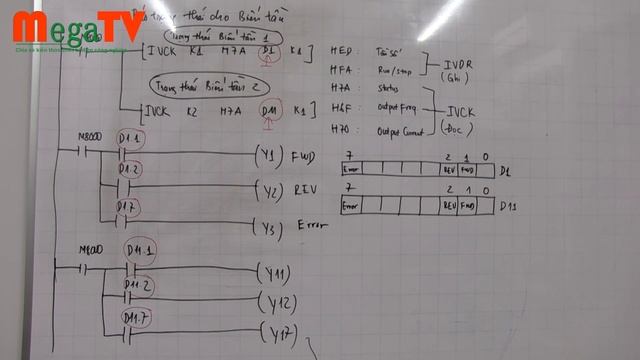 MegaTV
trạng thái cho Biến tần
Trạng thái Biến tần 1
[IVCK K1 H7A D1 K1]
Trạng thái Biến tần 2
[IVCK K2 H7A D11 K1]
HED: Tần số
HFA: Run/stop
IVDR
(Ghi)
H7A: Status
H6F: Output Freq.
H70: Output Current
IVCK
(Đọc)
M8000 D1.1 (Y1) FWD
D1.2 (Y2) REV
D1.7 (Y3) Error
7 2 1 0
Error REV FWD D1
7 2 1 0
Error REV FWD D11
M8000 D11.1 (Y11)
D11.2 (Y12)
D11.7 (Y17)